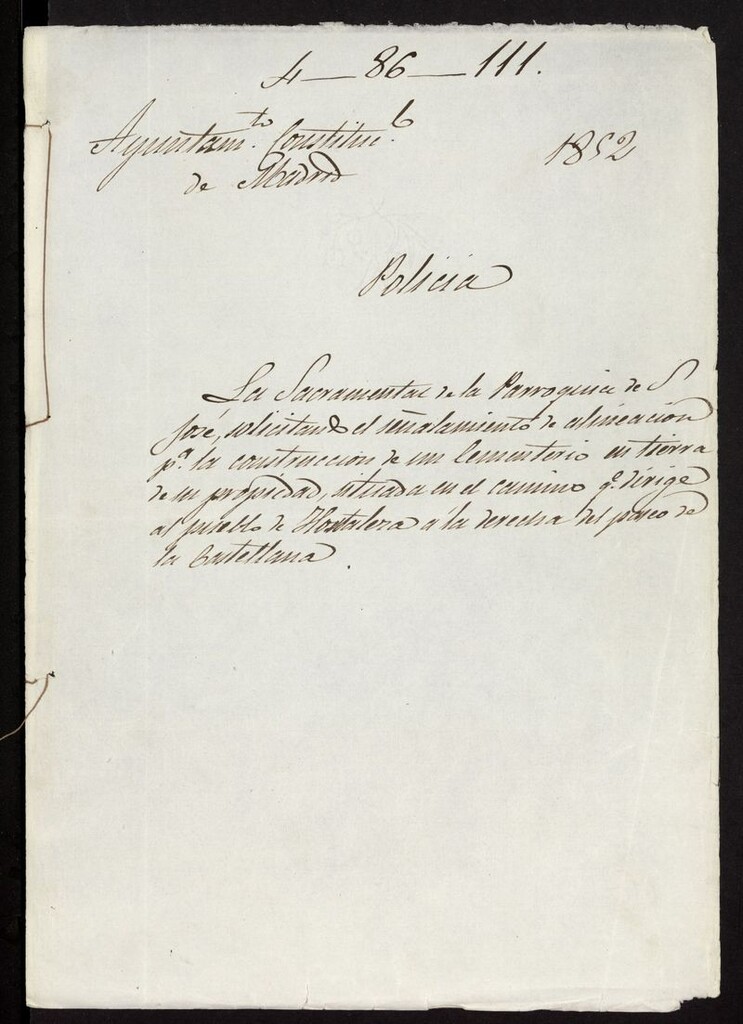 4—86—111.
Ayuntam.to Constituc.l
de Madrid
1852
Policia
La Sacramental de la Parroquia de S
José, solicitando el señalamiento de alineacion
p.a la construccion de un Cementerio en tierra
de su propiedad, situada en el camino q.e dirige
al pueblo de Hortaleza a la derecha del paseo de
la Castellana.